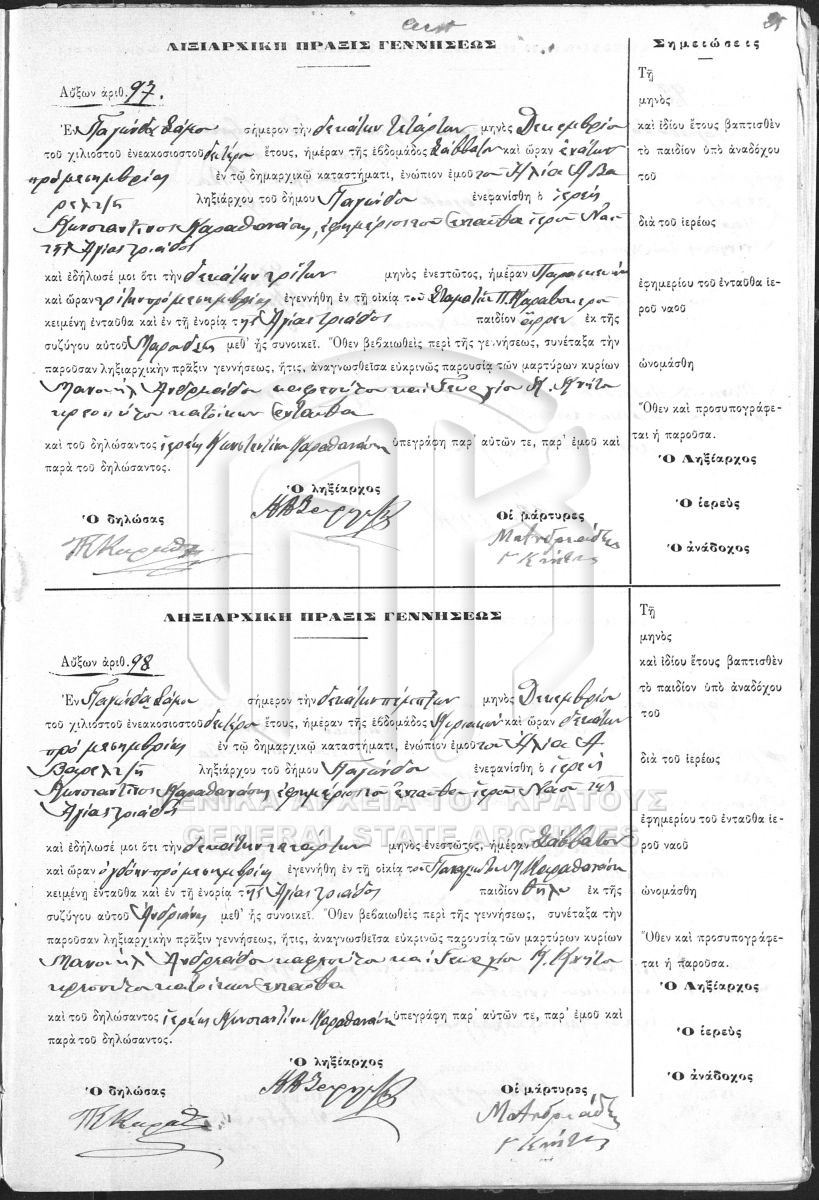 25
ΛΙΞΙΑΡΧΙΚΗ ΠΡΑΞΙΣ ΓΕΝΝΗΣΕΩΣ
Αὔξων ἀριθ. 97.
Ἐν Παγώνδα Σάμου σήμερον τὴν δεκάτην τετάρτην μηνὸς Δεκεμβρίου
τοῦ χιλιοστοῦ ἐνεακοσιοστοῦ δευτέρου ἔτους, ἡμέραν τῆς ἑβδομάδος Σάββατον καὶ ὥραν ἐνάτην
πρὸ μεσημβρίας ἐν τῷ δημαρχικῷ καταστήματι, ἐνώπιον ἐμοῦ του Ἠλία Α Βα
ρελτζῆ ληξιάρχου τοῦ δήμου Παγώνδου ἐνεφανίσθη ὁ ἱερεὺς
Κωνσταντῖνος Καραθανάσης ἐφημέριος τοῦ ἐνταῦθα ἱεροῦ Ναοῦ
τῆς Ἁγίας Τριάδος
καὶ ἐδήλωσέ μοι ὅτι τὴν δεκάτην τρίτην μηνὸς ἐνεστῶτος, ἡμέραν Παρασκευὴν
καὶ ὥραν τρίτην πρὸ μεσημβρίας ἐγεννήθη ἐν τῇ οἰκίᾳ τοῦ Σταματίου Π.
κειμένῃ ἐνταῦθα καὶ ἐν τῇ ἐνορίᾳ τῆς Ἁγίας Τριάδος παιδίον ἄρρεν ἐκ τῆς
συζύγου αὐτοῦ μεθ' ἧς συνοικεῖ. Ὅθεν βεβαιωθεὶς περὶ τῆς γεννήσεως, συνέταξα τὴν
παροῦσαν ληξιαρχικὴν πρᾶξιν γεννήσεως, ἥτις, ἀναγνωσθεῖσα εὐκρινῶς παρουσίᾳ τῶν μαρτύρων κυρίων
Μανουὴλ Ἀνδρεάδου καὶ Γεωργίου Κ. Κνήτου
κατοίκων ἐνταῦθα
καὶ τοῦ δηλώσαντος ἱερέως Κωνσταντίνου Καραθανάση ὑπεγράφη παρ' αὐτῶν τε, παρ' ἐμοῦ καὶ
παρὰ τοῦ δηλώσαντος.
Ὁ ληξίαρχος
Ὁ δηλώσας
Οἱ μάρτυρες
Μ Ανδρεάδης
Γ Κνήτης
Σημειώσεις
Τῇ
μηνὸς
καὶ ἰδίου ἔτους βαπτισθὲν
τὸ παιδίον ὑπὸ ἀναδόχου
τοῦ
διὰ τοῦ ἱερέως
ἐφημερίου τοῦ ἐνταῦθα ἱε-
ροῦ ναοῦ
ὠνομάσθη
Ὅθεν καὶ προσυπογράφε-
ται ἡ παροῦσα.
Ὁ Ληξίαρχος
Ὁ ἱερεὺς
Ὁ ἀνάδοχος
ΛΗΞΙΑΡΧΙΚΗ ΠΡΑΞΙΣ ΓΕΝΝΗΣΕΩΣ
Αὔξων ἀριθ. 98
Ἐν Παγώνδα Σάμου σήμερον τὴν δεκάτην πέμπτην μηνὸς Δεκεμβρίου
τοῦ χιλιοστοῦ ἐνεακοσιοστοῦ δευτέρου ἔτους, ἡμέραν τῆς ἑβδομάδος Κυριακὴν καὶ ὥραν δεκάτην
πρὸ μεσημβρίας ἐν τῷ δημαρχικῷ καταστήματι, ἐνώπιον ἐμοῦ του Ἠλία Α
Βαρελτζῆ ληξιάρχου τοῦ δήμου Παγώνδου ἐνεφανίσθη ὁ ἱερεὺς
Κωνσταντῖνος Καραθανάσης ἐφημέριος τοῦ ἐνταῦθα ἱεροῦ Ναοῦ τῆς
Ἁγίας Τριάδος
καὶ ἐδήλωσέ μοι ὅτι τὴν δεκάτην τετάρτην μηνὸς ἐνεστῶτος, ἡμέραν Σάββατον
καὶ ὥραν ὀγδόην πρὸ μεσημβρίας ἐγεννήθη ἐν τῇ οἰκίᾳ τοῦ Παναγιώτου Καραθανάση
κειμένῃ ἐνταῦθα καὶ ἐν τῇ ἐνορίᾳ τῆς Ἁγίας Τριάδος παιδίον θῆλυ ἐκ τῆς
συζύγου αὐτοῦ Ἀνδριάνης μεθ' ἧς συνοικεῖ. Ὅθεν βεβαιωθεὶς περὶ τῆς γεννήσεως, συνέταξα τὴν
παροῦσαν ληξιαρχικὴν πρᾶξιν γεννήσεως, ἥτις, ἀναγνωσθεῖσα εὐκρινῶς παρουσίᾳ τῶν μαρτύρων κυρίων
Μανουὴλ Ἀνδρεάδου καὶ Γεωργίου Κ. Κνήτου
κατοίκων ἐνταῦθα
καὶ τοῦ δηλώσαντος ἱερέως Κωνσταντίνου Καραθανάση ὑπεγράφη παρ' αὐτῶν τε, παρ' ἐμοῦ καὶ
παρὰ τοῦ δηλώσαντος.
Ὁ ληξίαρχος
Ὁ δηλώσας
Οἱ μάρτυρες
Μ Ανδρεάδης
Γ Κνήτης
Τῇ
μηνὸς
καὶ ἰδίου ἔτους βαπτισθὲν
τὸ παιδίον ὑπὸ ἀναδόχου
τοῦ
διὰ τοῦ ἱερέως
ἐφημερίου τοῦ ἐνταῦθα ἱε-
ροῦ ναοῦ
ὠνομάσθη
Ὅθεν καὶ προσυπογράφε-
ται ἡ παροῦσα.
Ὁ Ληξίαρχος
Ὁ ἱερεὺς
Ὁ ἀνάδοχος
ΓΕΝΙΚΑ ΑΡΧΕΙΑ ΤΟΥ ΚΡΑΤΟΥΣ
GENERAL STATE ARCHIVES